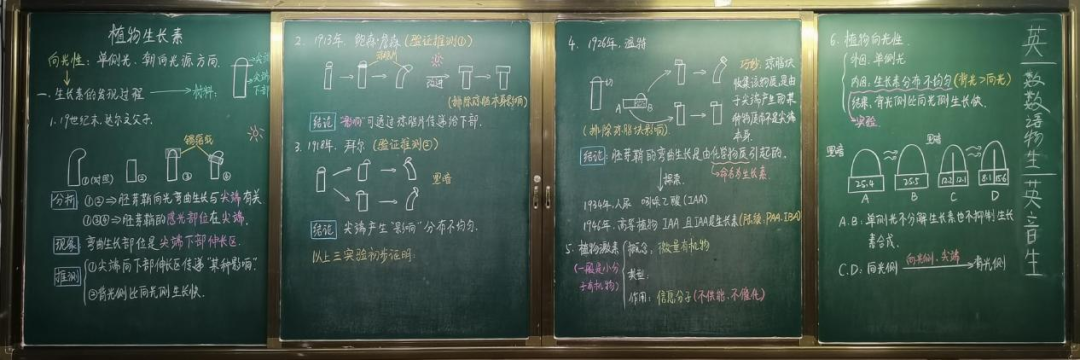 植物生长素
向光性：单侧光、朝向光源方向
一、生长素的发现过程 → 材料：
尖端
尖端
下部
1. 19世纪末，达尔文父子.
锡箔纸
①(对照) ② ③ ④
分析 ①②⇒胚芽鞘向光弯曲生长与尖端有关
①③④⇒胚芽鞘的感光部位在尖端.
现象 弯曲生长部位是尖端下部伸长区.
推测 ①尖端向下部伸长区传递"某种影响"
②背光侧比向光侧生长快.
2. 1913年，鲍森·詹森（验证推测①）
琼脂片
改进
(排除琼脂本身影响)
结论 "影响"可透过琼脂片传递给下部.
3. 1918年，拜尔（验证推测②）
黑暗
结论 尖端产生"影响"分布不均匀.
以上三实验初步证明.
4. 1926年，温特
A B
巧妙：琼脂块
收集该物质，是由
于尖端产生的某
种物质而不是尖端
本身.
(排除琼脂块影响)
结论：胚芽鞘的弯曲生长是由化学物质引起的.
探索. 命名为生长素
1934年 人尿 吲哚乙酸 (IAA)
1946年. 高等植物 IAA 且IAA是生长素(除该、PAA、IBA)
5. 植物激素
(一般是小分
子有机物)
概念：微量有机物
类型.
作用：信息分子(不供能、不催化)
6. 植物向光性.
外因：单侧光
内因：生长素分布不均匀(背光>向光)
结果：背光侧比向光侧生长快.
实验.
黑暗 黑暗
25.4 25.5 12.2 12.1 8.1 15.6
A B C D
A.B. 单侧光不分解生长素也不抑制生长
素合成.
C.D: 向光侧 向光侧、尖端 背光侧
英
数
数
语
物
生
英
立
自
生